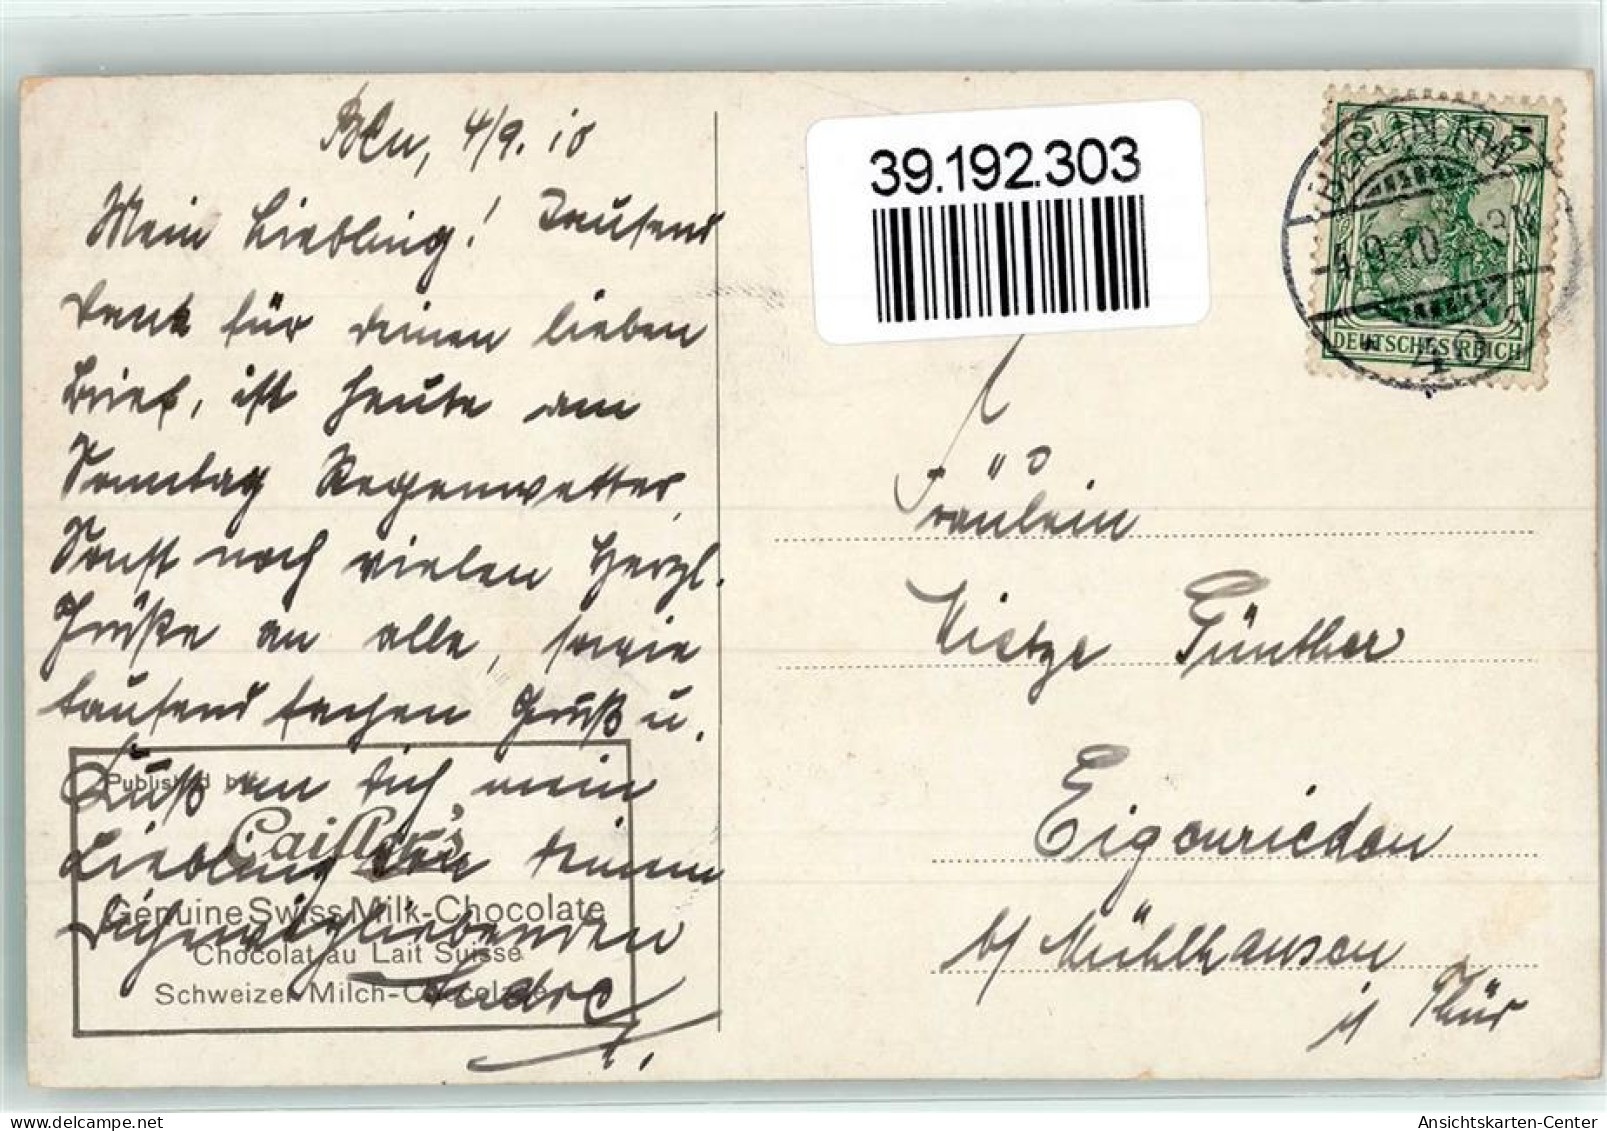 Bln, 4/9. 10
Mein Liebling! Tausend
Dank für deinen lieben
Brief, ist heute am
Sonntag Regenwetter,
Sonst noch vielen Herzl.
Grüße an alle, sowie
tausend fachen Gruß u.
Kuß an dich mein
Liebling von deinem
dich liebenden
Published by
Cailler's
Genuine Swiss Milk-Chocolate
Chocolat au Lait Suisse
Schweizer Milch-Chocolade
39.192.303
BERLIN NW
4.9.10
40
5 5
DEUTSCHES REICH
Fräulein
Mietze Günther
Eigenrieden
b/ Mühlhausen
i/ Thür
oldthing.de
Ansichtskarten-Center